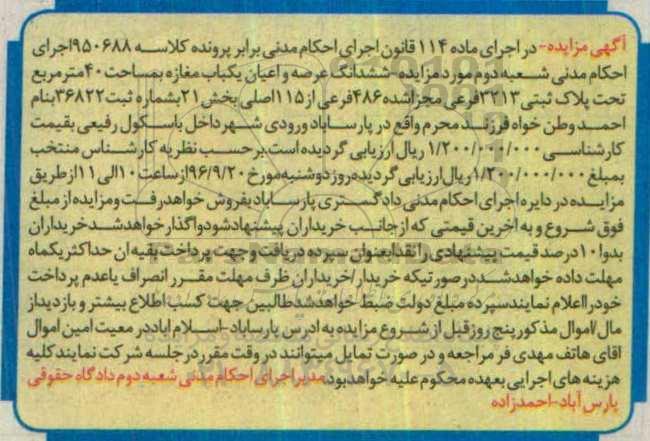 آگهی مزایده- در اجرای ماده ۱۱۴ قانون اجرای احکام مدنی برابر پرونده کلاسه ۹۵۰۶۸۸اجرای
احکام مدنی شعبه دوم مورد مزایده-ششدانگ عرصه و اعیان یکباب مغازه بمساحت ۴۰مترمربع
تحت پلاک ثبتی ۳۲۱۳فرعی مجزاشده۴۸۶فرعی از۱۱۵اصلی بخش۲۱بشماره ثبت۳۶۸۲۲بنام
احمد وطن خواه فرزند محرم واقع در پارساباد ورودی شهر داخل باسکول رفیعی بقیمت
کارشناسی ۱/۲۰۰/۰۰۰/۰۰۰ ریال ارزیابی گردیده است.برحسب نظریه کارشناس منتخب
بمبلغ ۱/۲۰۰/۰۰۰/۰۰۰ریال ارزیابی گردیده روز دوشنبه مورخ ۹۶/۹/۲۰از ساعت۱۰الی۱۱ازطریق
مزایده در دایره اجرای احکام مدنی دادگستری پارساباد بفروش خواهدرفت ومزایده از مبلغ
فوق شروع و به آخرین قیمتی که از جانب خریداران پیشنهاد شود واگذار خواهد شد خریداران
بدوا ۱۰درصد قیمت پیشنهادی را نقدا بعنوان سپرده دریافت و جهت پرداخت بقیه ان حداکثر یکماه
مهلت داده خواهدشد درصورتیکه خریدار/خریداران ظرف مهلت مقرر انصراف یاعدم پرداخت
خود را اعلام نمایند سپرده مبلغ دولت ضبط خواهدشد طالبین جهت کسب اطلاع بیشتر و بازدید از
مال/اموال مذکور پنج روز قبل از شروع مزایده به ادرس پارساباد-اسلام اباد در معیت امین اموال
اقای هاتف مهدی فر مراجعه و در صورت تمایل میتوانند در وقت مقرر در جلسه شرکت نمایند کلیه
هزینه های اجرایی بعهده محکوم علیه خواهدبود.مدیر اجرای احکام مدنی شعبه دوم دادگاه حقوقی
پارس آباد-احمدزاده